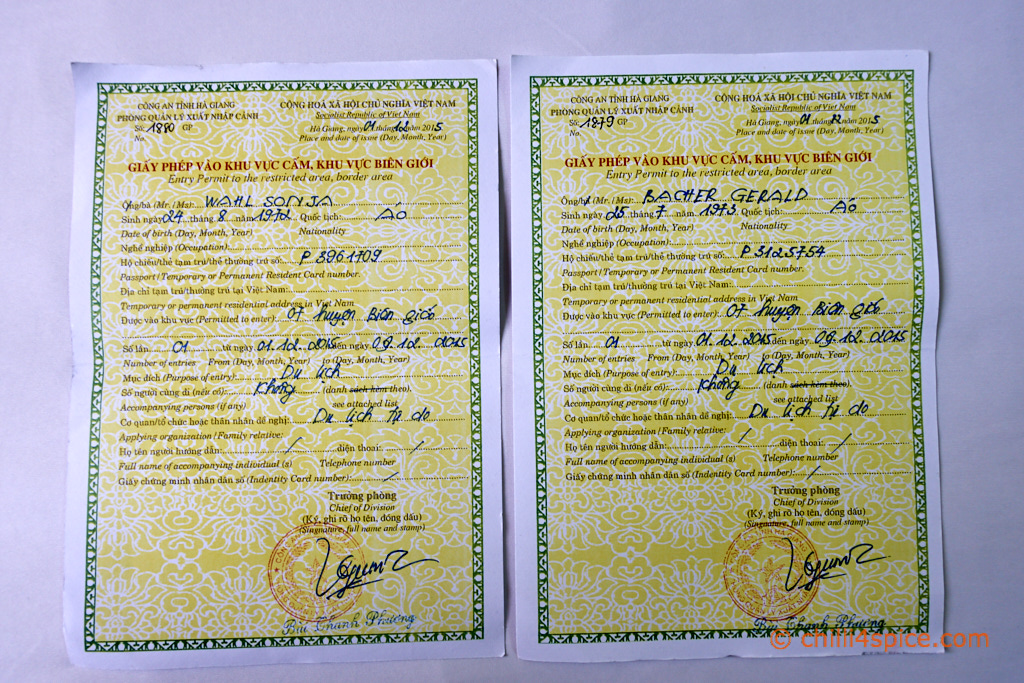 CÔNG AN TỈNH HÀ GIANG
PHÒNG QUẢN LÝ XUẤT NHẬP CẢNH
Số: 1880 GP
No.
CỘNG HOÀ XÃ HỘI CHỦ NGHĨA VIỆT NAM
Socialist Republic of Viet Nam
Hà Giang, ngày 01 tháng 12 năm 2015
Place and date of issue (Day, Month, Year)
GIẤY PHÉP VÀO KHU VỰC CẤM, KHU VỰC BIÊN GIỚI
Entry Permit to the restricted area, border area
Ông/bà (Mr. /Ms): WAHL SONJA
Sinh ngày 24 tháng 8 năm 1972 Quốc tịch: Áo
Date of birth (Day, Month, Year) Nationality
Nghề nghiệp (Occupation):
Hộ chiếu/thẻ tạm trú/thẻ thường trú số: P 3961709
Passport / Temporary or Permanent Resident Card number.
Địa chỉ tạm trú/thường trú tại Việt Nam:
Temporary or permanent residential address in Viet Nam
Được vào khu vực (Permitted to enter): 07 huyện Biên giới
Số lần: 01 từ ngày 01.12.2015 đến ngày 09.12.2015
Number of entries From (Day, Month, Year) to (Day, Month, Year)
Mục đích (Purpose of entry): Du lịch
Số người cùng đi (nếu có): không (danh sách kèm theo).
Accompanying persons (if any) see attached list
Cơ quan/tổ chức hoặc thân nhân đề nghị: Du lịch tự do
Applying organization / Family relative:
Họ tên người hướng dẫn: / điện thoại: /
Full name of accompanying individual (s) Telephone number
Giấy chứng minh nhân dân số (Indentity Card number): /
Trưởng phòng
Chief of Division
(Ký, ghi rõ họ tên, đóng dấu)
(Singnature, full name and stamp)
Bùi Thanh Phương
CÔNG AN TỈNH HÀ GIANG
PHÒNG QUẢN LÝ XUẤT NHẬP CẢNH
Số: 1879 GP
No.
CỘNG HOÀ XÃ HỘI CHỦ NGHĨA VIỆT NAM
Socialist Republic of Viet Nam
Hà Giang, ngày 01 tháng 12 năm 2015
Place and date of issue (Day, Month, Year)
GIẤY PHÉP VÀO KHU VỰC CẤM, KHU VỰC BIÊN GIỚI
Entry Permit to the restricted area, border area
Ông/bà (Mr. /Ms): BACHER GERALD
Sinh ngày 25 tháng 7 năm 1973 Quốc tịch: Áo
Date of birth (Day, Month, Year) Nationality
Nghề nghiệp (Occupation):
Hộ chiếu/thẻ tạm trú/thẻ thường trú số: P 3125754
Passport / Temporary or Permanent Resident Card number.
Địa chỉ tạm trú/thường trú tại Việt Nam:
Temporary or permanent residential address in Viet Nam
Được vào khu vực (Permitted to enter): 07 huyện Biên giới
Số lần: 01 từ ngày 01.12.2015 đến ngày 09.12.2015
Number of entries From (Day, Month, Year) to (Day, Month, Year)
Mục đích (Purpose of entry): Du lịch
Số người cùng đi (nếu có): không (danh sách kèm theo).
Accompanying persons (if any) see attached list
Cơ quan/tổ chức hoặc thân nhân đề nghị: Du lịch tự do
Applying organization / Family relative:
Họ tên người hướng dẫn: / điện thoại: /
Full name of accompanying individual (s) Telephone number
Giấy chứng minh nhân dân số (Indentity Card number): /
Trưởng phòng
Chief of Division
(Ký, ghi rõ họ tên, đóng dấu)
(Singnature, full name and stamp)
Bùi Thanh Phương
© chilli4spice.com